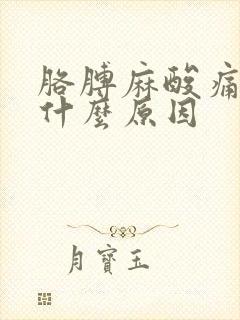 胳膊麻酸痛
什麼原因
月寶玉